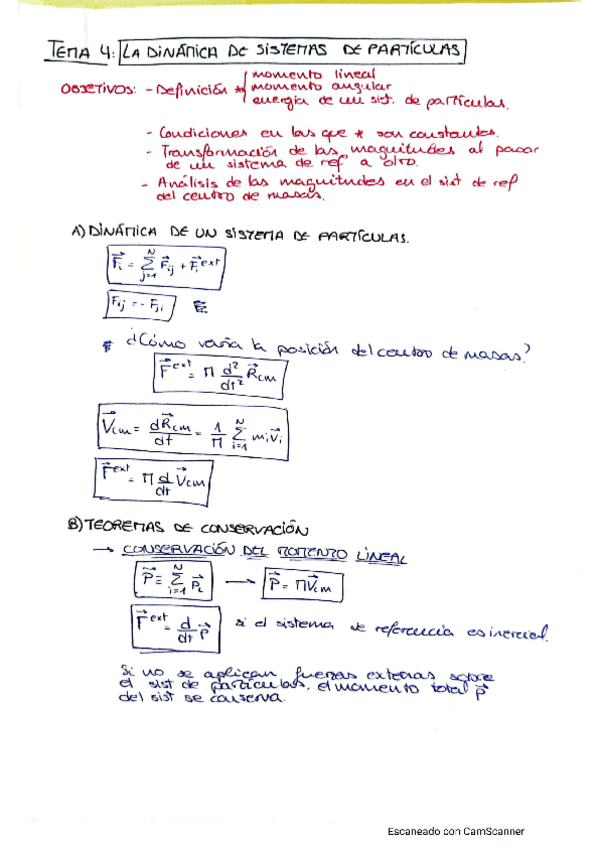 TEMA 4: LA DINÁMICA DE SISTEMAS DE PARTÍCULAS
momento lineal
OBJETIVOS: - Definición * momento angular
energía de un sist. de partículas.
- Condiciones en las que * son constantes.
- Transformación de las magnitudes al pasar
de un sistema de ref a otro.
- Análisis de las magnitudes en el sist de ref
del centro de masas.
A) DINÁMICA DE UN SISTEMA DE PARTÍCULAS.
F⃗i = Σ_{j=1}^{N} F⃗ij + F⃗i^ext
Fij = - Fji
* ¿Cómo varía la posición del centro de masas?
F⃗^ext = M d²/dt² R⃗cm
V⃗cm = dR⃗cm/dt = 1/M Σ_{i=1}^{N} mi v⃗i
F⃗^ext = M d/dt V⃗cm
B) TEOREMAS DE CONSERVACIÓN
→ CONSERVACIÓN DEL MOMENTO LINEAL
P⃗ ≡ Σ_{i=1}^{N} P⃗i → P⃗ = MV⃗cm
F⃗^ext = d/dt P⃗ si el sistema de referencia es inercial.
Si no se aplican fuerzas externas sobre
el sist de partículas, el momento total p⃗
del sist se conserva.
Escaneado con CamScanner